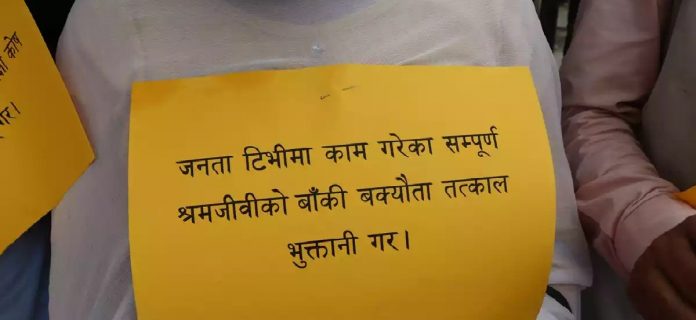 कोष
गर।
जनता टिभीमा काम गरेका सम्पूर्ण
श्रमजीवीको बाँकी बक्यौता तत्काल
भुक्तानी गर।